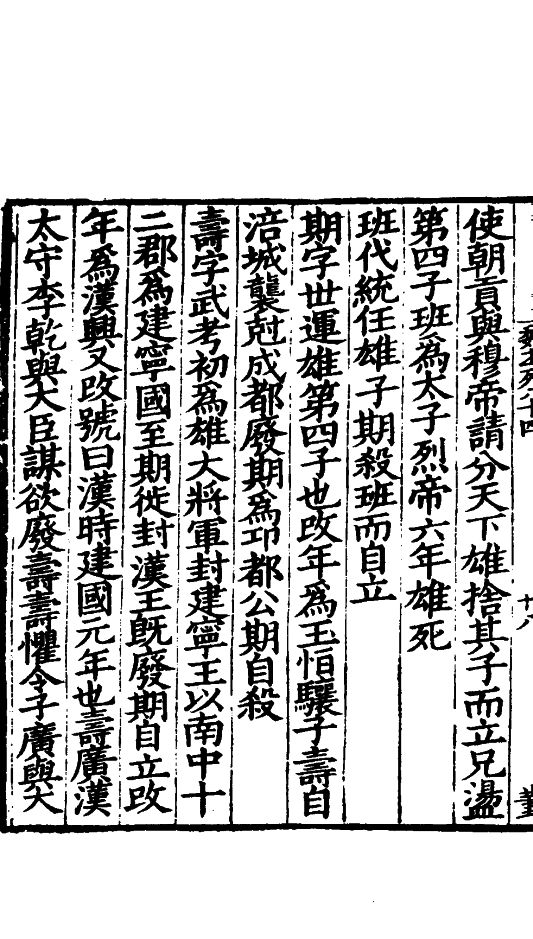 使朝貢與穆帝請分天下雄捨其子而立兄盪
第四子班爲太子烈帝六年雄死
班代統任雄子期殺班而自立
期字世運雄第四子也改年爲玉恒驤子壽自
涪城襲尅成都廢期爲邛都公期自殺
壽字武考初爲雄大將軍封建寧王以南中十
二郡爲建寧國至期徙封漢王旣廢期自立改
年爲漢興又改號曰漢時建國元年也壽廣漢
太守李乾與大臣謀欲廢壽壽懼令子廣與大